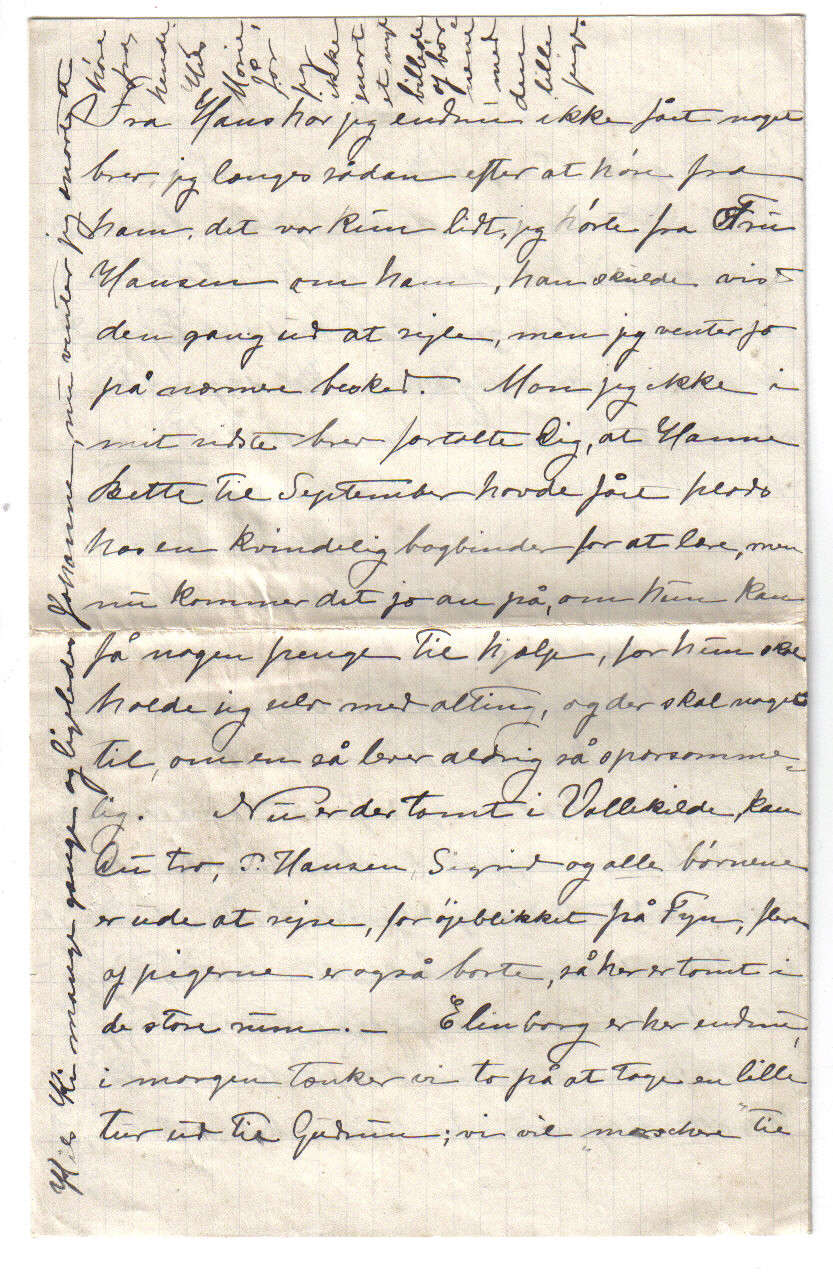 Fra Hans har jeg endnu ikke fået noget
brev, jeg længes sådan efter at høre fra
ham, det var kun lidt, jeg hørte fra Fru
Hansen om ham, han skulde vist
den gang ud at sejle, men jeg venter jo
på nærmere besked. Mon jeg ikke i
mit sidste brev fortalte Dig, at Hanne
Bette til September havde fået plads
hos en kvindelig bogbinder for at lære, men
nu kommer det jo an på, om hun kan
få nogen penge til hjælp, for hun skal
holde sig selv med alting, og der skal noget
til, om en så lever aldrig så sparsomme-
lig. Nu er der tomt i Vallekilde, kan
Du tro, P. Hansen, Sigrid og alle børnene
er ude at rejse, for øjeblikket på Fyn, flere
af pigerne er også borte, så her er tomt i
de store rum. – Elinborg er her endnu,
i morgen tænker vi to på at tage en lille
tur ud til Gudrun; vi vil "marschere" til
Hils Ki mange gange og ligeledes Johanne, nu venter jeg snart at
høre
fra
hende.
Hils
Marie,
får
jeg
ikke
snart
et nyt
billede
af bør-
nene
med
den
lille
pige.